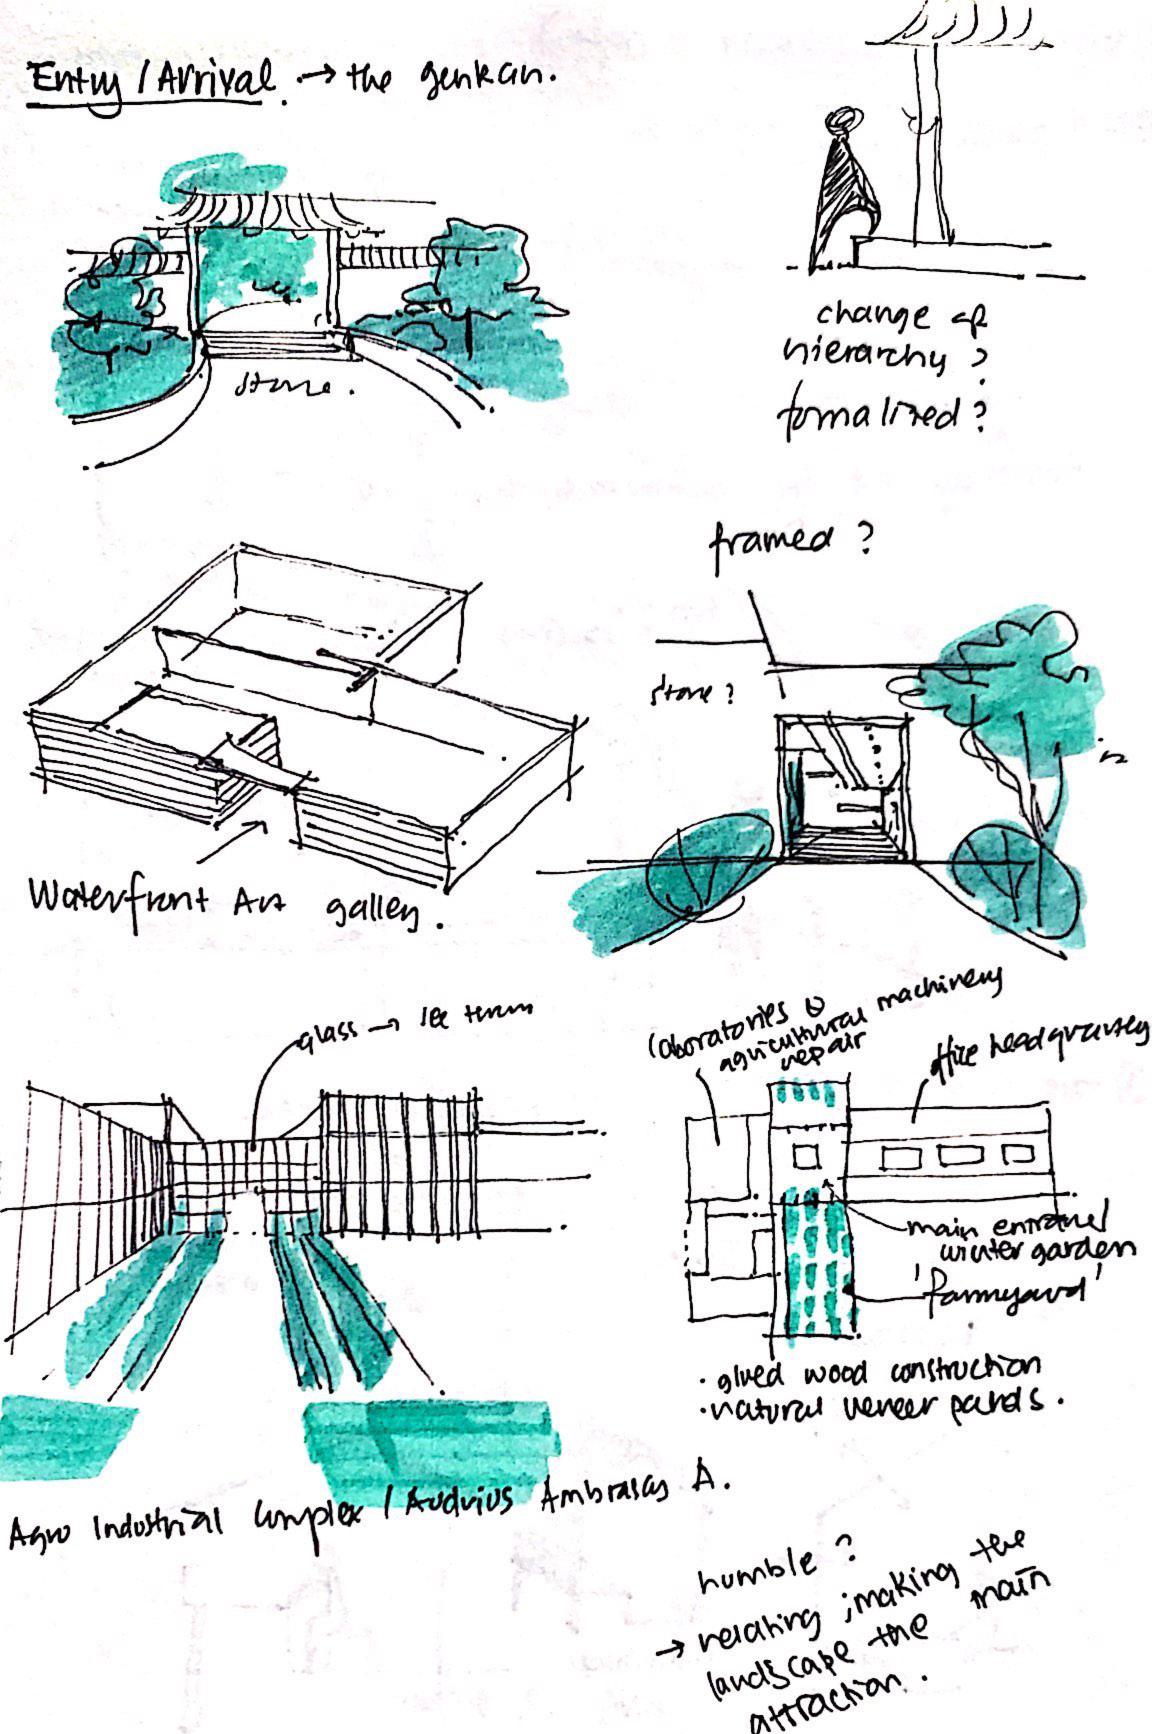 Entry / Arrival. → the genkan.
stone.
change of
hierarchy ?
formalized ?
framed ?
stone ?
Waterfront Art galley.
glass → see
laboratories &
agricultural machinery
repair
office headquarters
main entrance/
winter garden
'farmyard'
• glued wood construction
• natural veneer panels.
Agro Industrial Complex / Audrius Ambrasas A.
humble ?
→ relating ; making the
landscape the main
attraction.